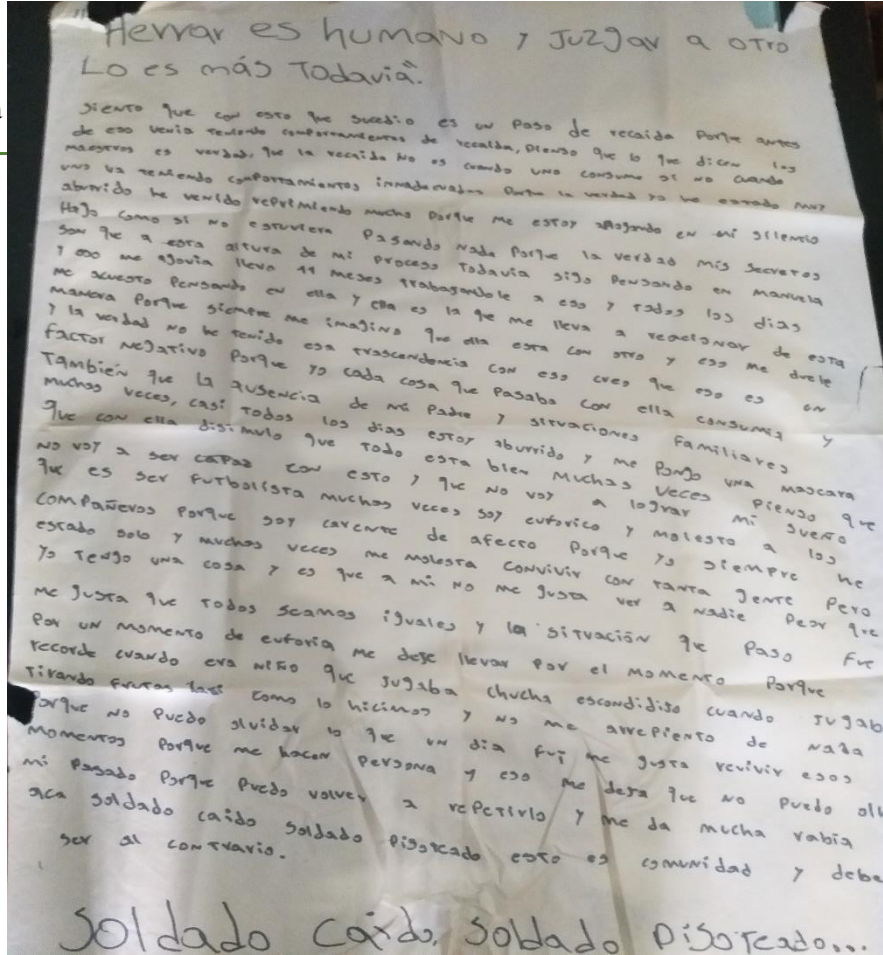 Herrar es humano y Juzgar a otro
Lo es más Todavia".
siento que con esto que sucedio es un paso de recaida Porque antes
de eso venia teniendo comportamientos de recaida, pienso que lo que dicen los
maestros es verdad, que la recaida no es cuando uno consume si no cuando
uno va teniendo comportamientos innadecuados Porque la verdad yo he estado muy
aburrido he venido reprimiendo mucho Porque me estoy ahogando en mi silencio
Hago como si no estuviera Pasando nada Porque la verdad mis secretos
son que a esta altura de mi proceso Todavia sigo Pensando en Manuela
y eso me agovia llevo 11 meses trabagandole a eso y todos los dias
me acuesto Pensando en ella y ella es la que me lleva a reacionar de esta
manera Porque siempre me imagino que ella esta con otro y eso me duele
y la verdad no he tenido esa trascendencia con eso creo que eso es un
factor negativo Porque yo cada cosa que Pasaba con ella consumia y
También que la ausencia de mi Padre y situaciones Familiares
muchas veces, casi todos los dias estoy aburrido y me Pongo una mascara
que con ella disimulo que todo esta bien Muchas veces Pienso que
no voy a ser capaz con esto y que no voy a lograr mi sueño
que es ser futbolista muchas veces soy euforico y molesto a los
compañeros Porque soy carente de afecto Porque yo siempre he
estado solo y muchas veces me molesta convivir con tanta gente Pero
Yo Tengo una cosa y es que a mi no me gusta ver a nadie Peor que
me gusta que todos seamos iguales y la situación que Paso Fue
Por un momento de euforia me deje llevar Por el momento Porque
recorde cuando era niño que jugaba chucha escondidijo cuando jugab
tirando frutas asi como lo hicimos y no me arrepiento de nada
Porque no Puedo olvidar lo que un dia fui me gusta revivir esos
momentos Porque me hacen Persona y eso me deja que no Puedo olv
mi Pasado Porque Puedo volver a repetirlo y me da mucha rabia
aca soldado caido soldado Pisoteado esto es comunidad y debe
ser al contrario.
Soldado Caido, Soldado Pisoteado...